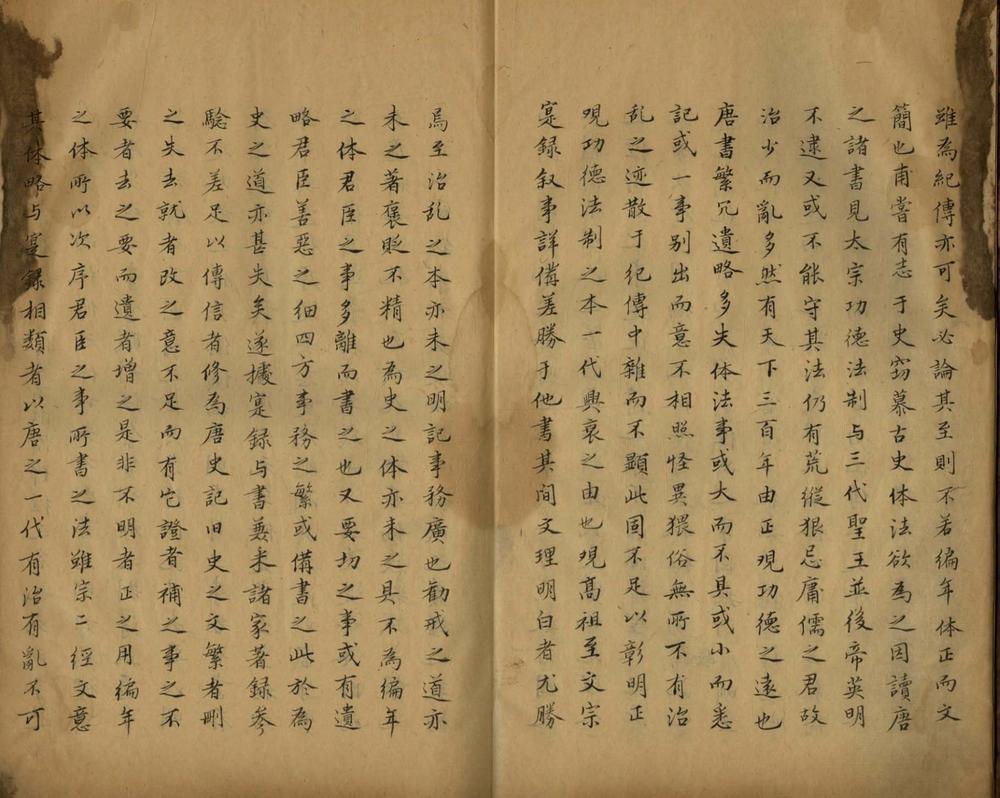 雖為紀傳亦可矣必論其至則不若編年体正而文
簡也甫嘗有志于史窃慕古史体法欲為之因讀唐
之諸書見太宗功德法制与三代聖王並後帝英明
不逮又或不能守其法仍有荒縱狠忌庸儒之君故
治少而亂多然有天下三百年由正現功德之遠也
唐書繁冗遺略多失体法事或大而不具或小而悉
記或一事别出而意不相照怪異猥俗無所不有治
乱之迹散于纪傳中雜而不顯此固不足以彰明正
現功德法制之本一代興衰之由也現髙祖至文宗
寔録叙事詳備差勝于他書其间文理明白者尤勝
焉至治乱之本亦未之明記事務廣也勸戒之道亦
未之著褒貶不精也為史之体亦未之具不為編年
之体君臣之事多離而書之也又要切之事或有遺
略君臣善惡之细四方事務之繁或備書之此於為
史之道亦甚失矣遂據寔録与書兼采諸家著録参
驗不差足以傳信者修為唐史記旧史之文繁者刪
之失去就者改之意不足而有它證者補之事之不
要者去之要而遺者增之是非不明者正之用編年
之体所以次序君臣之事所書之法雖宗二經文意
其体略与寔録相類者以唐之一代有治有亂不可